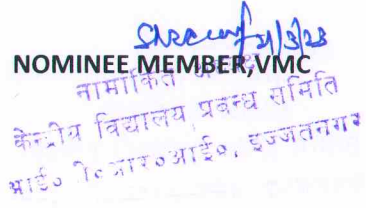 21/3/23
NOMINEE MEMBER,VMC
नामांकित
केन्द्रीय विद्यालय प्रबन्ध समिति
आई० आर०आई०, इज्जतनगर